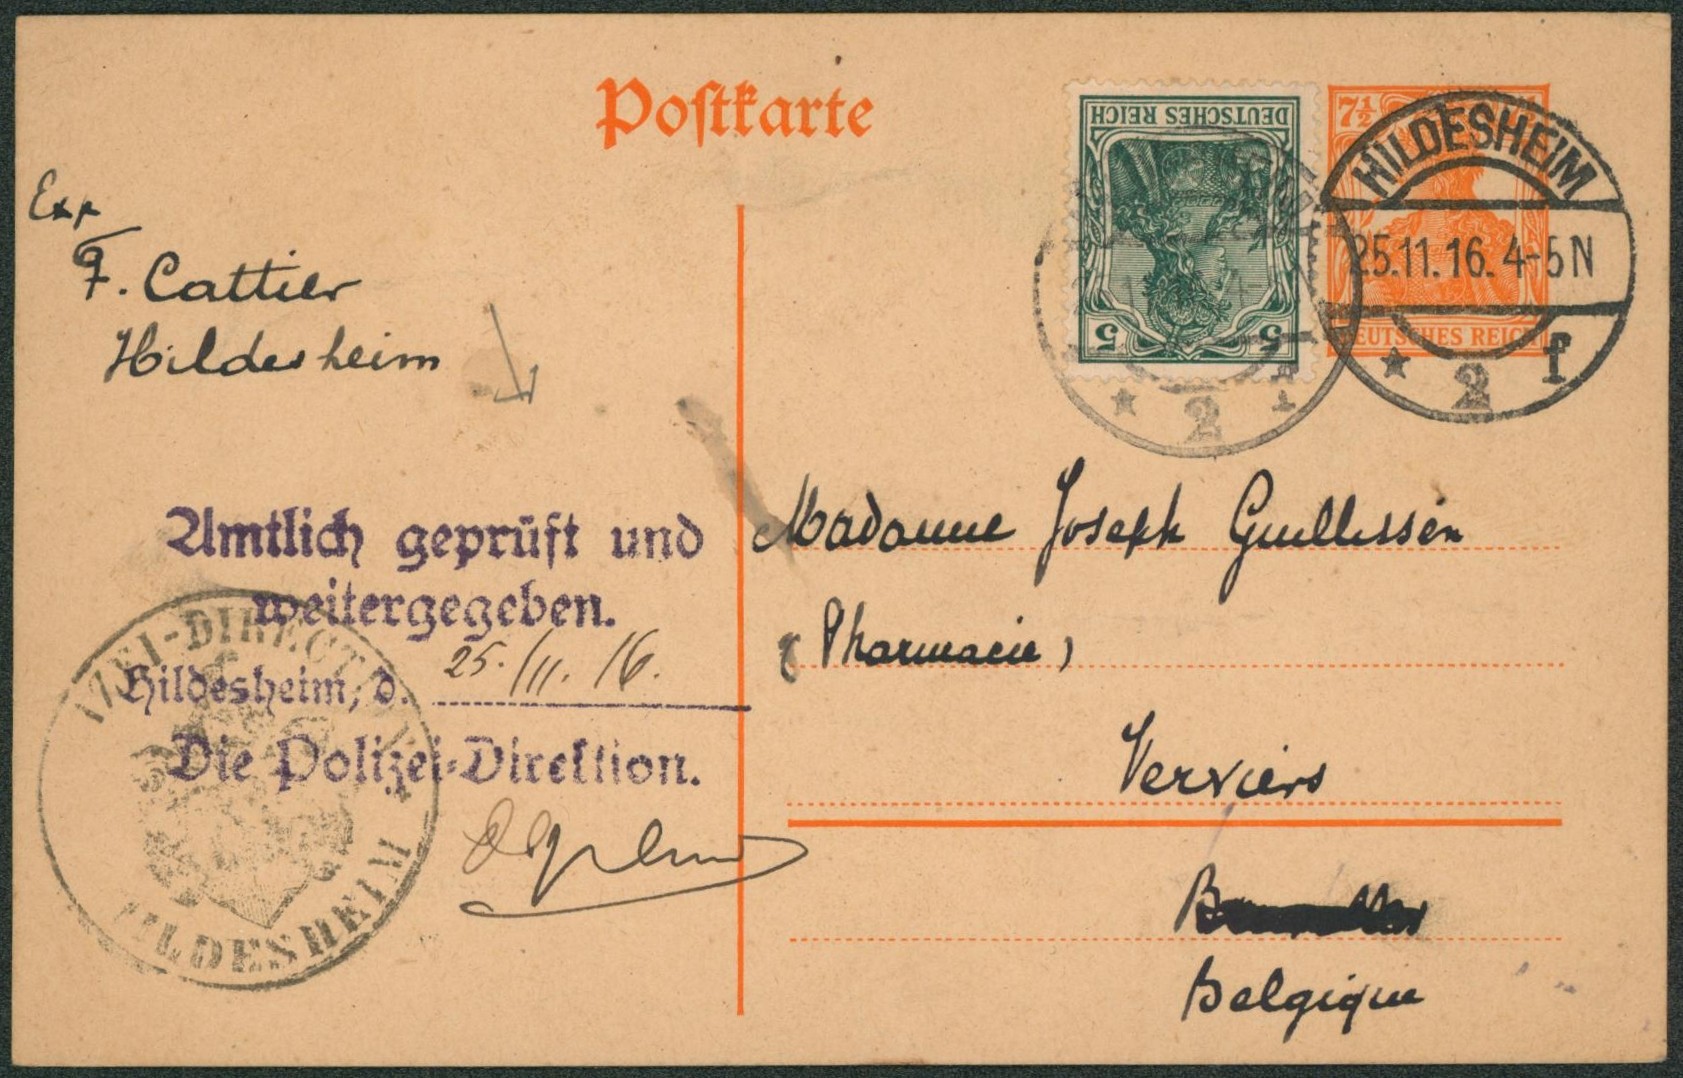 Postkarte
DEUTSCHES REICH
5 5
7½
DEUTSCHES REICH
HILDESHEIM
25.11.16. 4-5N
* 2 f
* 2
Exp
F. Cattier
Hildesheim
Amtlich geprüft und
weitergegeben.
Hildesheim, d. 25./11. 16.
Die Polizei-Direktion.
IZEI-DIRECT
HILDESHEIM
Madame Joseph Guillissen
(Pharmacie)
Verviers
Belgique